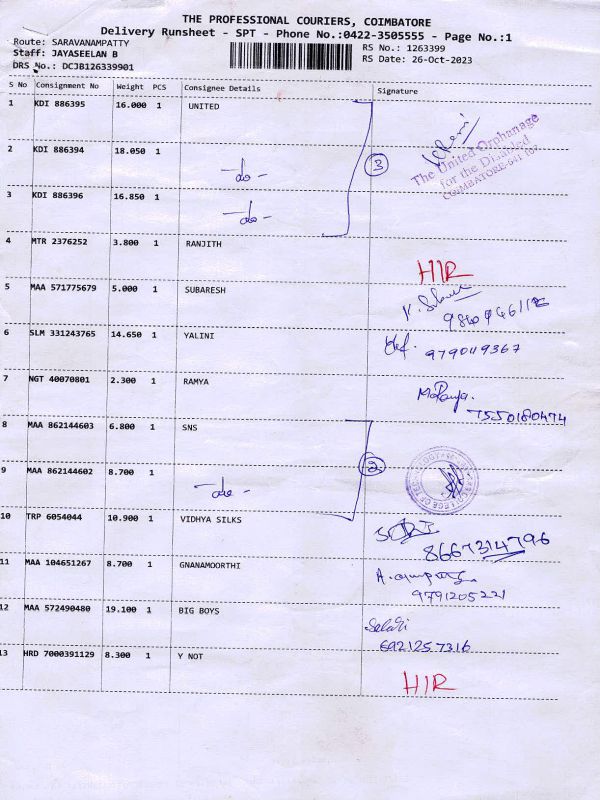 THE PROFESSIONAL COURIERS, COIMBATORE
Delivery Runsheet - SPT - Phone No.:0422-3505555 - Page No.:1
Route: SARAVANAMPATTY
Staff: JAYASEELAN B
DRS No.: DCJB126339901
RS No.: 1263399
RS Date: 26-Oct-2023
S No Consignment No Weight PCS Consignee Details Signature
1 KDI 886395 16.000 1 UNITED
The United Orphanage
for the Disabled
COIMBATORE-641 107
2 KDI 886394 18.050 1 -do- 3
3 KDI 886396 16.850 1 -do-
4 MTR 2376252 3.800 1 RANJITH HIR
5 MAA 571775679 5.000 1 SUBARESH
6 SLM 331243765 14.650 1 YALINI 9790119367
7 NGT 40070801 2.300 1 RAMYA 7550180474
8 MAA 862144603 6.800 1 SNS
9 MAA 862144602 8.700 1 -do- 2
10 TRP 6054044 10.900 1 VIDHYA SILKS
8667314796
11 MAA 104651267 8.700 1 GNANAMOORTHI
9791205221
12 MAA 572490480 19.100 1 BIG BOYS
6921257316
13 HRD 7000391129 8.300 1 Y NOT HIR